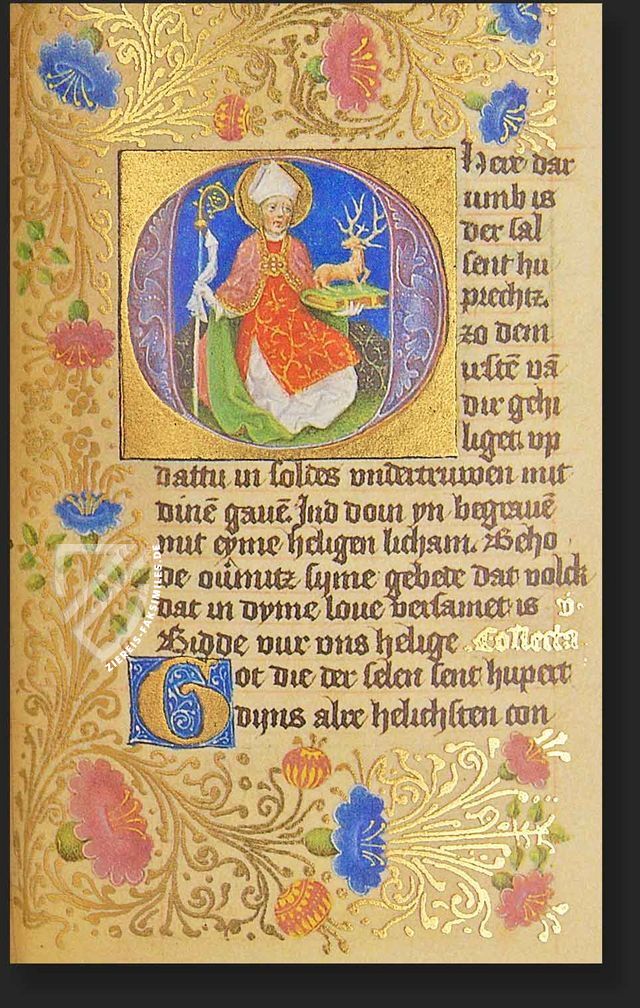 O Here dar
umb is
der sal
sent hu
prechtz
zo dem
ursten va
dir gehi
liget. up
dattu in soldes undertruwen mit
dinē gavē. Ind doin yn begravē
mit eyme heligen licham. Beho
de oitmůtz syme gebede dat volck
dat in dyme love versamet is v̇.
Bidde vur uns helige Collecta
Got die der selen sent hupert
dijns alre helichsten con
ZIEREIS-FAKSIMILES.DE